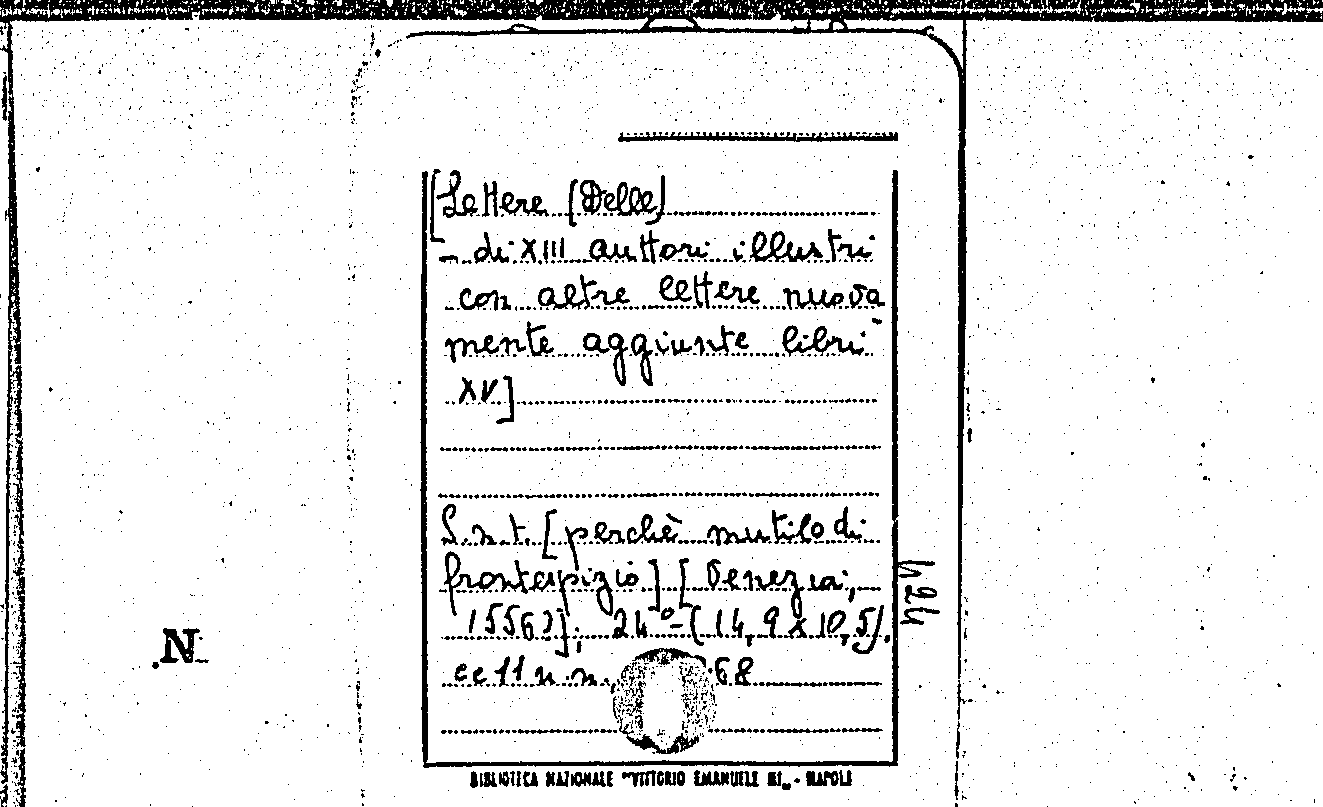 [Lettere (Delle)
- di XIII auttori illustri
con altre lettere nuova
mente aggiunte libri
XV]
S.n.t. [perchè mutilo di
frontespizio] [Venezia,
1556?]; 24°- (14,9 x 10,5).
cc 11 n.n. 68
424
.N.
BIBLIOTECA NAZIONALE "VITTORIO EMANUELE III„ - NAPOLI